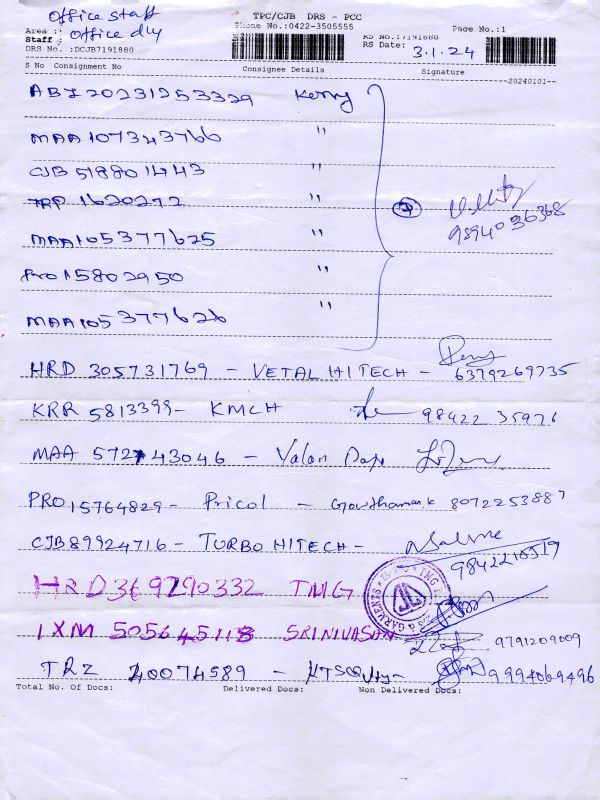 Office staff
TPC/CJB DRS - PCC
Area : Office dly
Phone No.:0422-3505555
Page No.:1
Staff :
RS No.:7191880
RS Date: 3.1.24
DRS No. :DCJB7191880
S No Consignment No Consignee Details Signature
--20240101--
ABI 20231253329 Kerry
MAA 107343766 "
CJB 518801443 "
TRP 1620272 " 9894036368
MAA105377625 "
PRO 15802950 "
MAA105377626 "
HRD 305731769 - VETAL HITECH - 6379269735
KRR 5813399 - KMCH 98422 35976
MAA 572743046 -
PRO 15764829 - Pricol - Gowthaman k 8072253887
CJB89924716 - TURBO HITECH - 9842218519
HRD369290332 TMG
IXM 505645118 SRINIVASAN 9791209009
TRZ 20074589 - 9994069496
Total No. Of Docs: Delivered Docs: Non Delivered Docs: